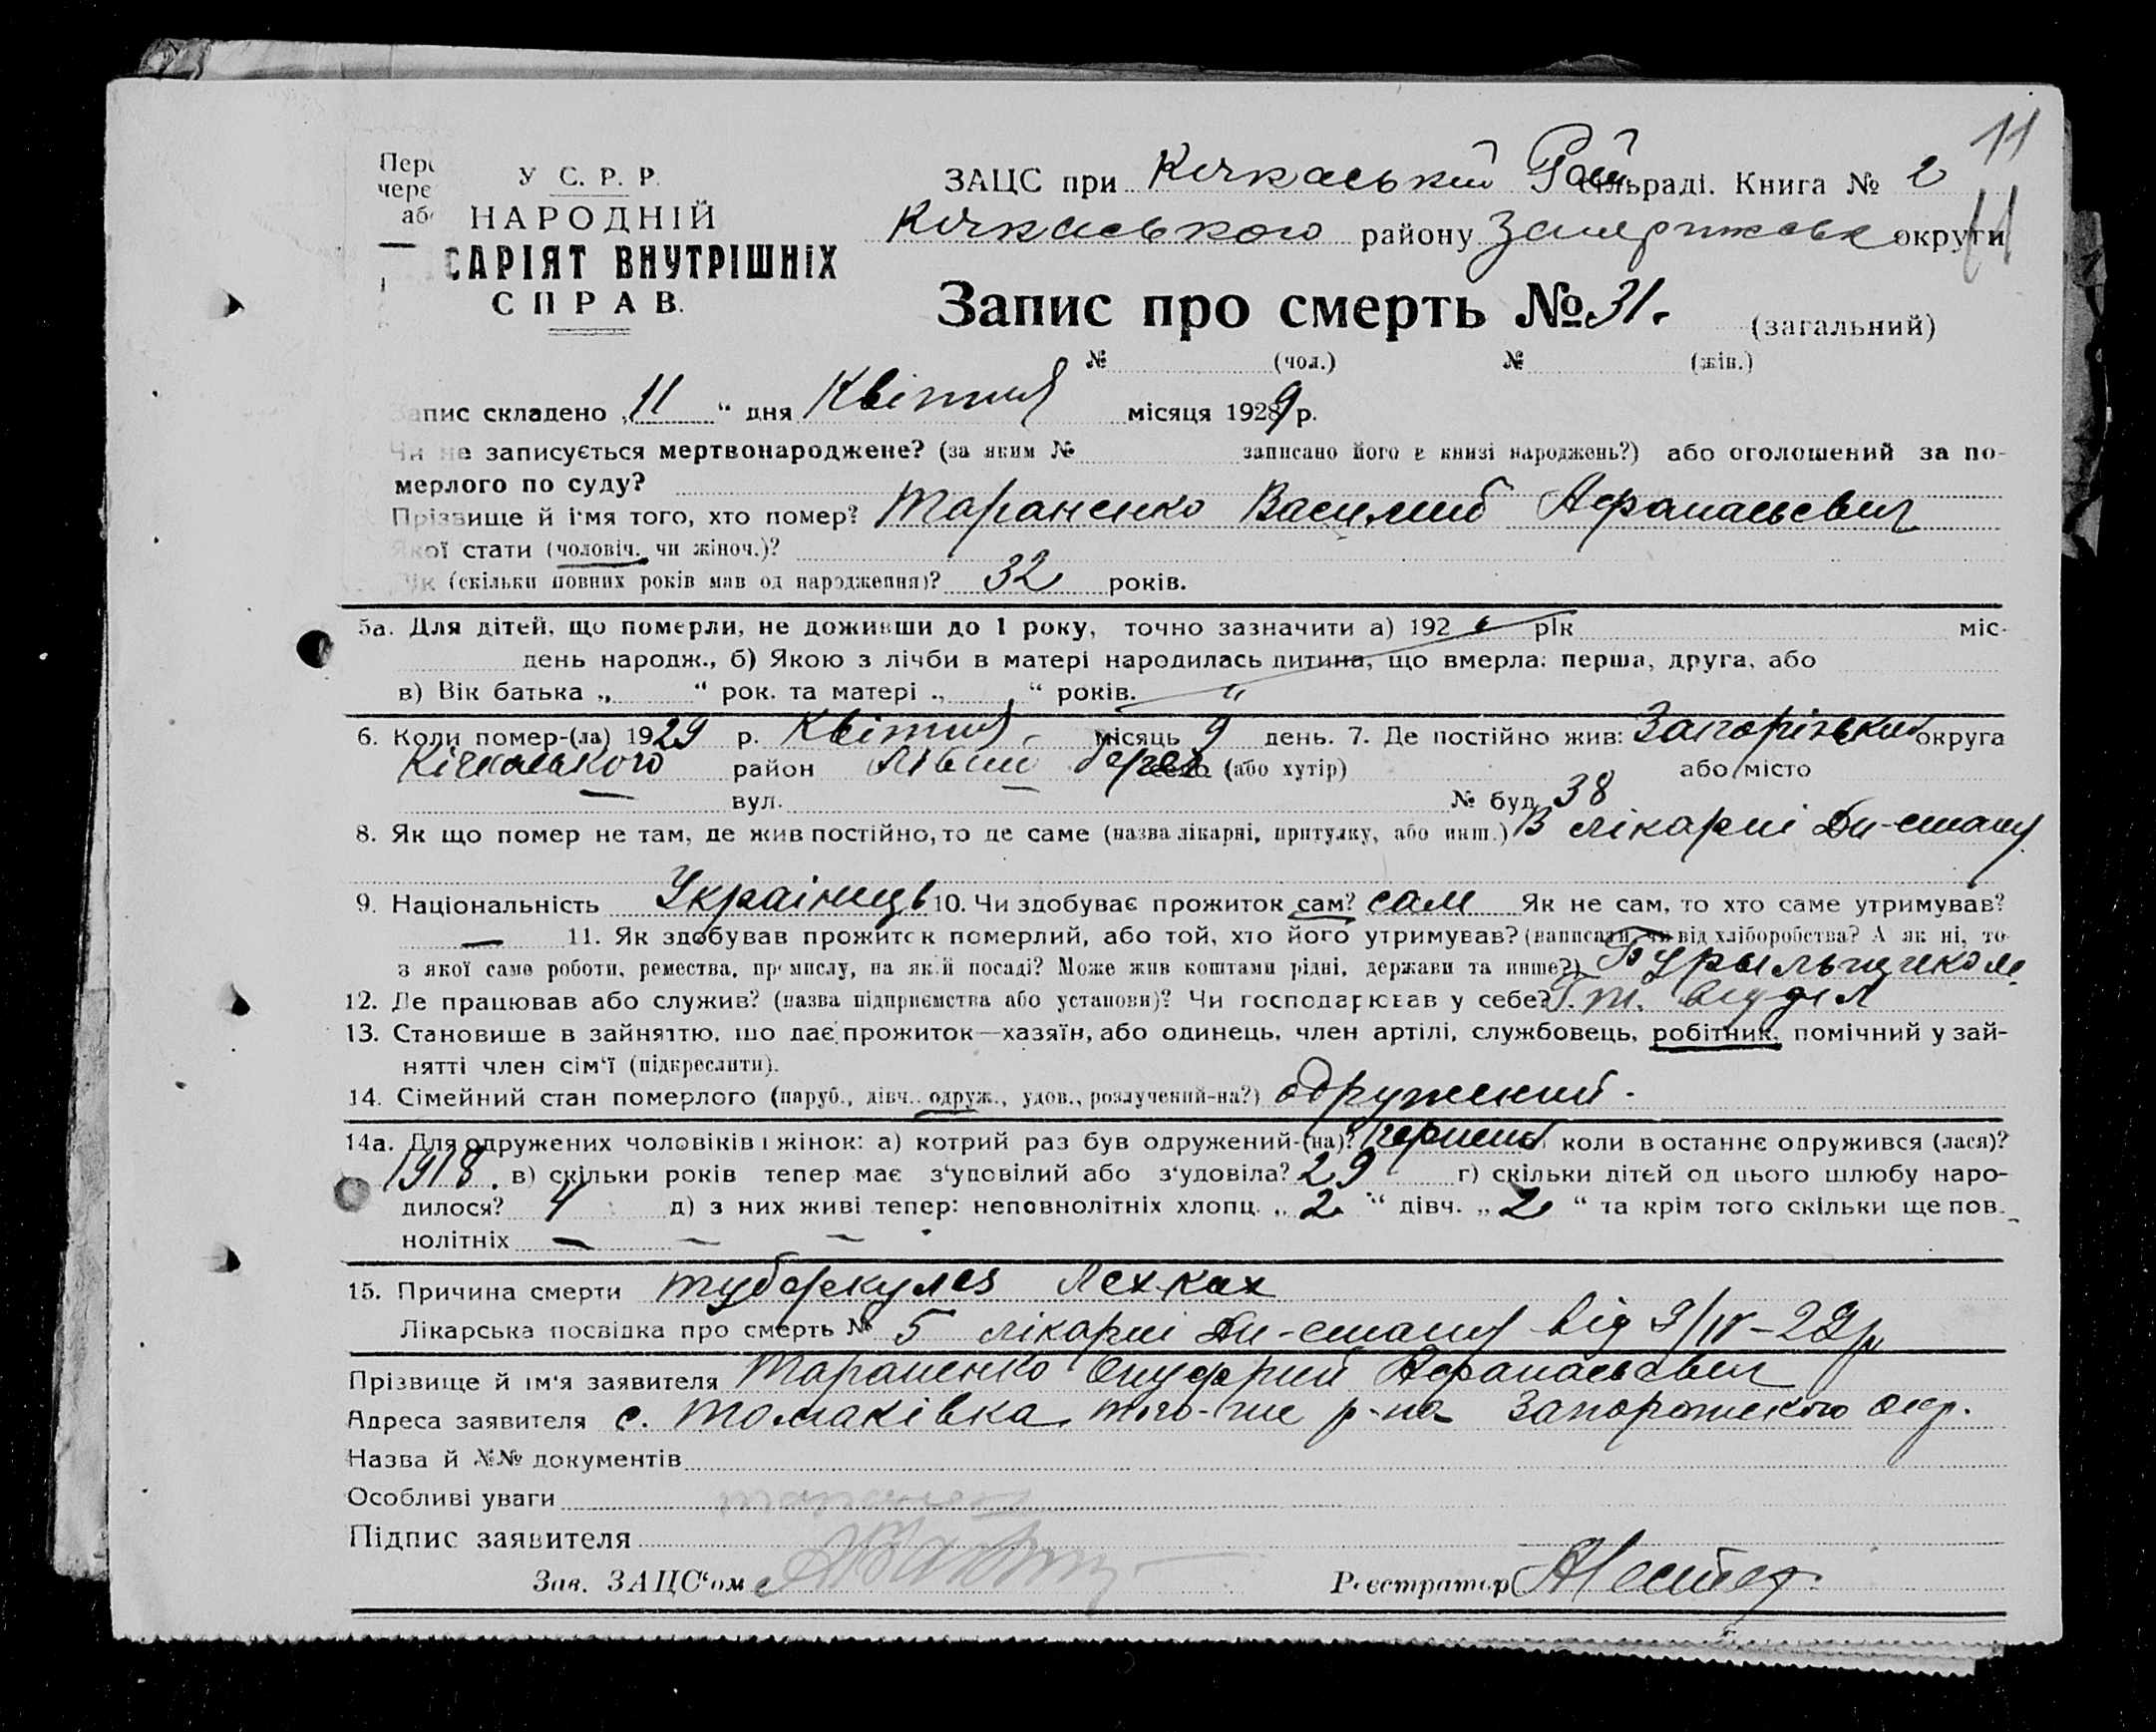 11
У С. Р. Р.
НАРОДНІЙ
САРІЯТ ВНУТРІШНІХ
СПРАВ.
Пере
чере
або
ЗАЦС при Кічкаський Рай сільраді. Книга № 2
Кічкаського району Запорижськ округи
11
Запис про смерть № 31. (загальний)
№ (чол.) № (жін.)
Запис складено „11“ дня Квітня місяця 1929 р.
Чи не записується мертвонароджене? (за яким № записано його в книзі народжень?) або оголошений за по-
мерлого по суду?
Прізвище й ім'я того, хто помер? Тараненко Василий Афанасьевич
Якої стати (чоловіч. чи жіноч.)?
Вік (скільки повних років мав од народження)? 32 років.
5а. Для дітей, що померли, не доживши до 1 року, точно зазначити а) 192 рік міс.
день народж., б) Якою з лічби в матері народилась дитина, що вмерла: перша, друга, або
в) Вік батька „ “ рок. та матері „ “ років. "
6. Коли помер-(ла) 1929 р. Квітня місяць 9 день. 7. Де постійно жив: Запорізький округа
Кічкаського район Лівий берег село (або хутір) або місто
— вул. № буд 38
8. Як що помер не там, де жив постійно, то де саме (назва лікарні, притулку, або инш.) В лікарні Дн-стану
9. Національність Українець 10. Чи здобуває прожиток сам? сам Як не сам, то хто саме утримував?
— 11. Як здобував прожиток померлий, або той, хто його утримував? (написати, чи від хліборобства? А як ні, то
з якої саме роботи, ремества, промислу, на якій посаді? Може жив коштами рідні, держави та инше?) Бурыльщиком
12. Де працював або служив? (назва підприємства або установи)? Чи господарював у себе? відділ
13. Становише в зайняттю, що дає прожиток—хазяїн, або одинець, член артілі, службовець, робітник, помічний у зай-
нятті член сім‘ї (підкреслити).
14. Сімейний стан померлого (паруб., дівч., одруж., удов., розлучений-на?) одружений.
14а. Для одружених чоловіків і жінок: а) котрий раз був одружений-(на)? первий коли востаннє одружився (лася)?
1918. в) скільки років тепер має з‘уповілий або з‘удовіла? 29 г) скільки дітей од цього шлюбу наро-
дилося? 4 д) з них живі тепер: неповнолітніх хлопц. „2“ дівч. „2“ та крім того скільки ще пов-
нолітніх — — —
15. Причина смерти туберкулез Легких
Лікарська посвідка про смерть № 5 лікарні Дн-стану від 9/IV-29р
Прізвище й ім'я заявителя Тараненко Онуфрий Афанасьевич
Адреса заявителя с. Томаківка того-же р-на Запорожского окр.
Назва й №№ документів
Особливі уваги
Підпис заявителя
Зав. ЗАЦС‘ом
Реєстратор